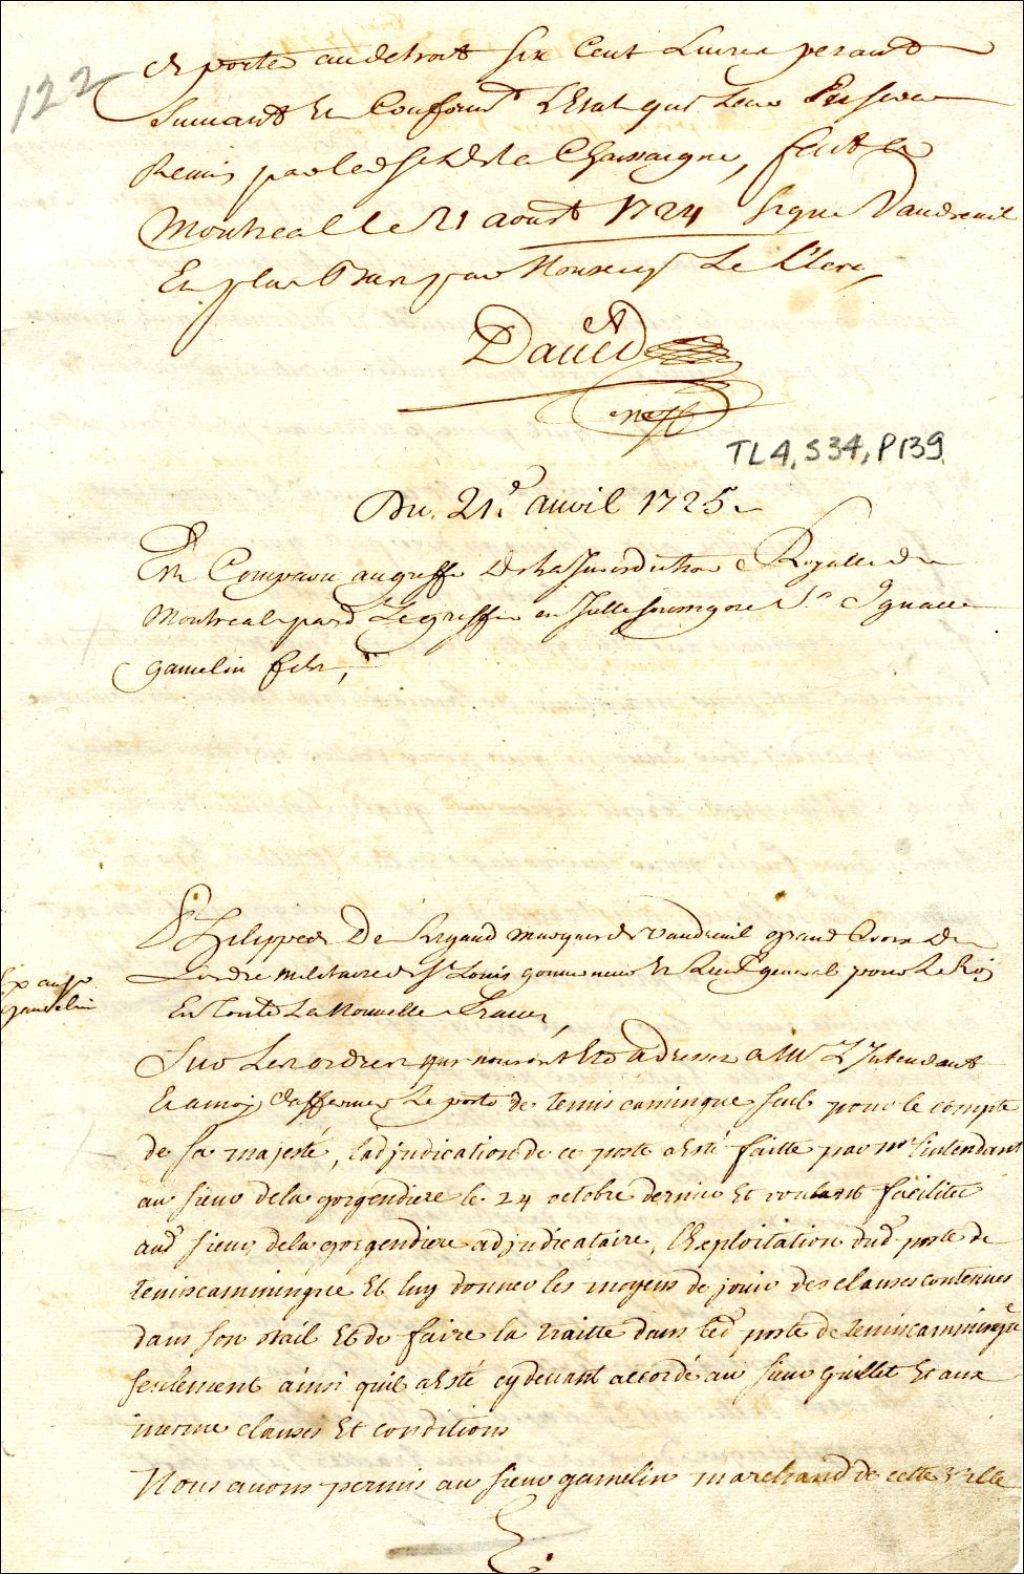 122
de porter au detroit six Cent Livres pesant
suivant Et Conformt LEstat qui Leur En sera
Remis par led sr De La Chassaigne, fait a
Montreal le 21 aoust 1724 signé Vaudreuil
Et plus Bas par Monseigr Le Clerc,
David
TL4, S34, P139
Du. 21e. auril 1725.
Est Comparu au greffe De La Jurisdiction Royalle de
Montreal pard Le greffier en Jcelle soussigné Sr Ignace
gamelin fils,
Philippes De Rigaud Marquis de Vaudreuil grand Croix De
Lordre militaire de St Louis gouuerneur Et Lieutt general pour Le Roy
En Toute La Nouuelle France,
gamelin
Sur Les ordres qui nous ont Esté adressés a Mr L'Intendant
Et a moy daffermer Le poste de temiscamingue seul pour le compte
de sa majesté, ladjudication de ce poste a Esté faitte par mr l'intendant
au sieur dela gorgendiere le 24 octobre dernier Et voulant faciliter
aud sieur dela gorgendiere adjudicataire, lExploitation dud poste de
temiscamingue Et luy donner les moyens de jouir des clauses contenues
dans son bail Et de faire la traitte dans led poste de temiscamingue
seulement ainsi quil a Esté cydevant accordé au sieur guillet Et aux
mesme clauses Et conditions
Nous auons permis au sieur gamelin marchand de cette ville